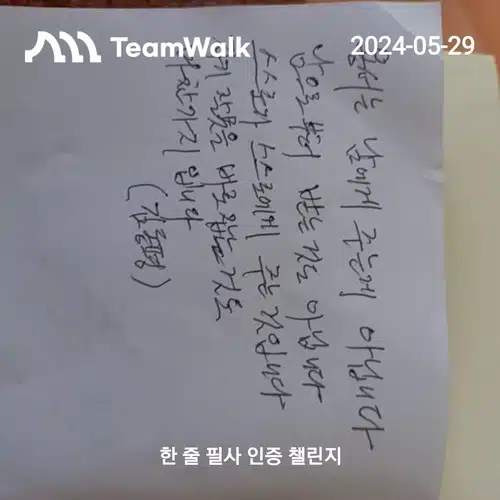 TeamWalk
2024-05-29
용서는 남에게 주는게 아닙니다
남으로부터 받는 것도 아닙니다
스스로가 스스로에게 주는 것입니다
자기 잘못을 바로잡는 것도
마찬가지 입니다
(김홍명)
한 줄 필사 인증 챌린지